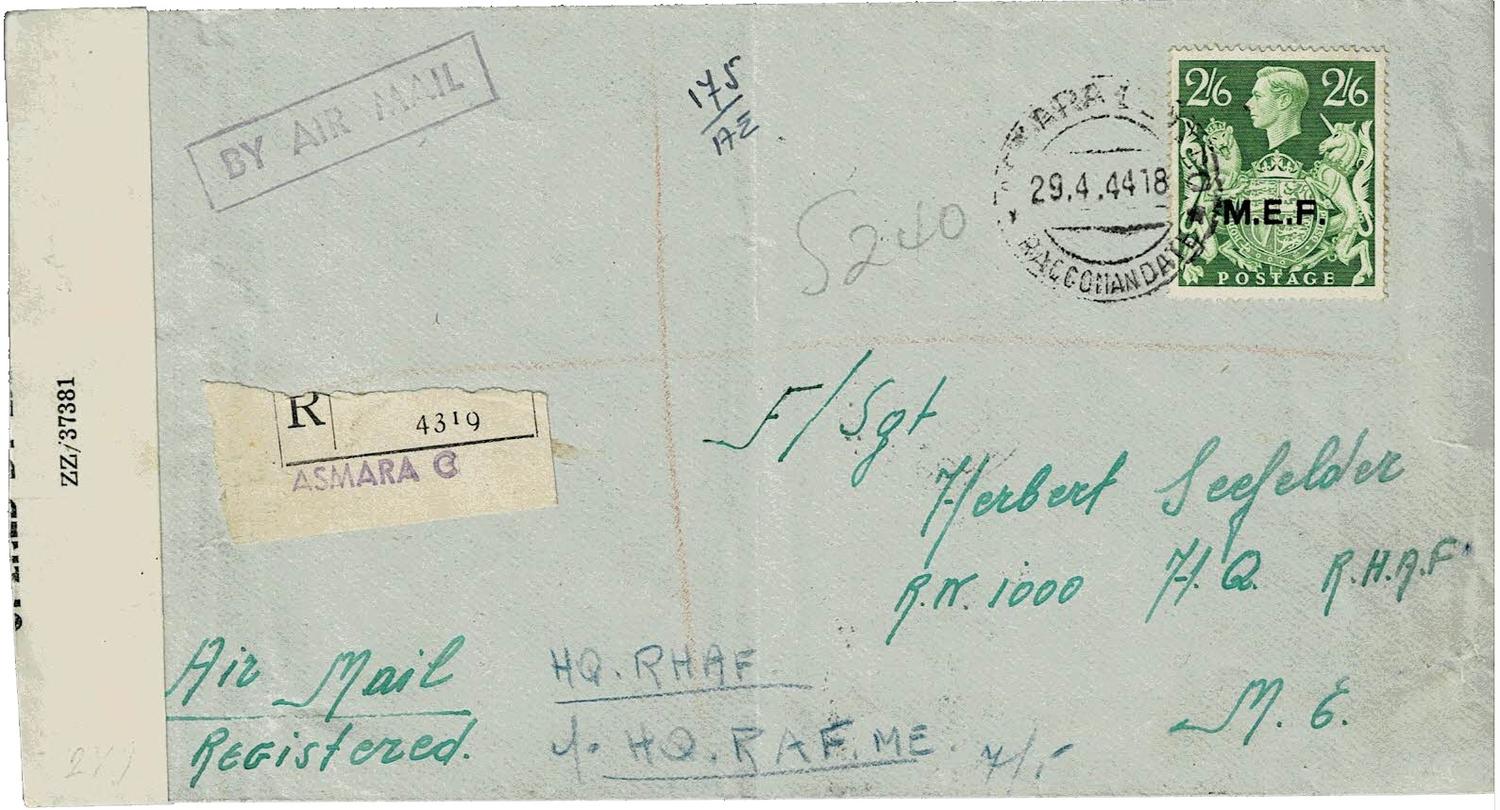 BY AIR MAIL
175
AE
2/6 2/6
29.4.44 18
RACCOMANDATE
M.E.F.
POSTAGE
5240
ZZ/37381
R 4319
ASMARA C
F/Sgt
Herbert Seefelder
R.N. 1000 H.Q. R.H.A.F
M.E.
Air Mail
Registered.
HQ. RHAF
c/o HQ. RAF. ME.